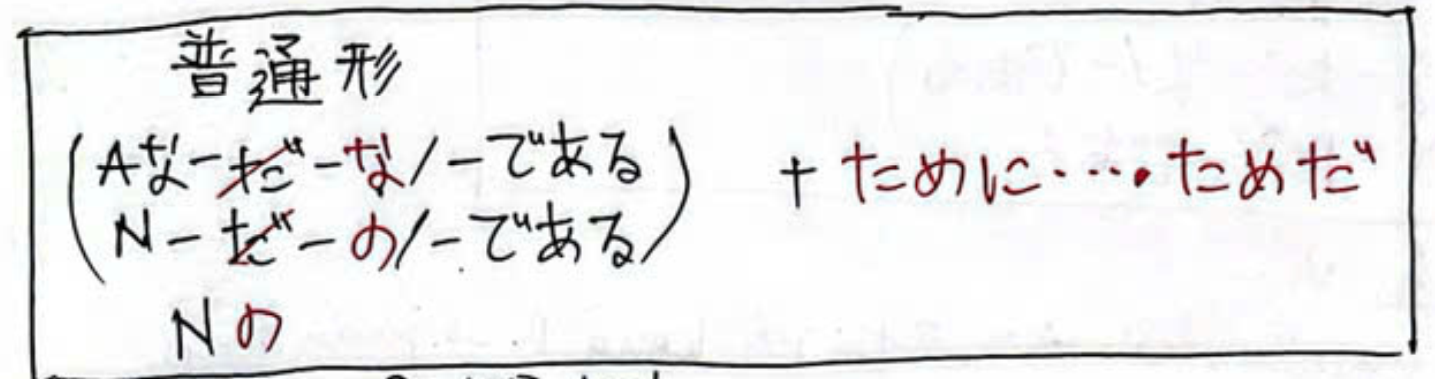 普通形
(Aな-だ-な/-である) + ために・・・・ためだ
(N-だ-の/-である)
Nの